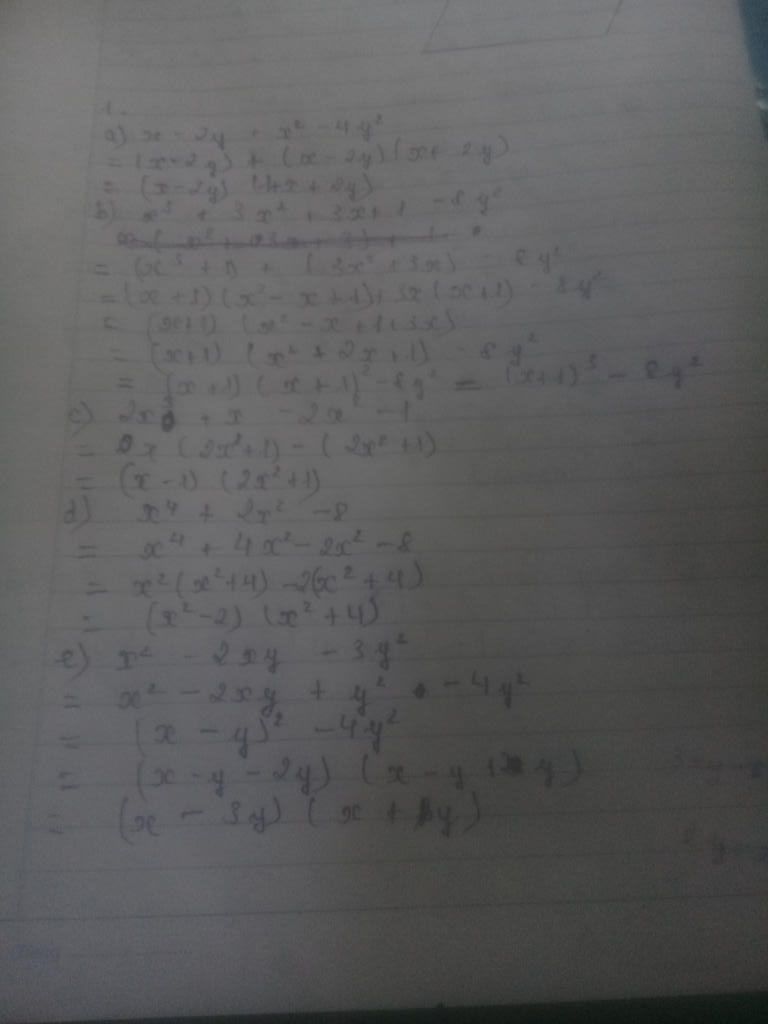 1.
a) x - 2y + x² - 4y²
= (x - 2y) + (x - 2y) (x + 2y)
= (x - 2y) (1 + x + 2y)
b) x³ + 3x² + 3x + 1 - 8y³
= (x³ + 1) + (3x² + 3x) - 8y³
= (x + 1) (x² - x + 1) + 3x (x + 1) - 8y³
= (x+1) (x² - x + 1 + 3x)
= (x+1) (x² + 2x + 1) - 8y³
= (x + 1) (x + 1)² - 8y³ = (x+1)³ - 8y²
c) 2x³ + x - 2x² - 1
= x (2x² + 1) - (2x² + 1)
= (x - 1) (2x² + 1)
d) x⁴ + 2x² - 8
= x⁴ + 4x² - 2x² - 8
= x² (x² + 4) - 2(x² + 4)
= (x² - 2) (x² + 4)
e) x² - 2xy - 3y²
= x² - 2xy + y² - 4y²
= (x - y)² - 4y²
= (x - y - 2y) (x - y + 2y)
= (x - 3y) (x + y)